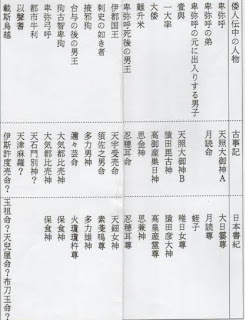 倭人伝中の人物 古事記 日本書紀
卑弥呼 天照大御神A 大日孁尊
卑弥呼の弟 月読命 月読尊
卑弥呼の元に出入りする男子 蛭子
壹與 天照大御神B 稚日女尊
一大率 猿田毘古神 猿田彦大神
大倭 高御産巣日神 高皇産霊尊
難升米 思金神 思兼神
卑弥呼死後の男王 忍穂耳命 忍穂耳尊
伊都国王 天宇受売命 天鈿女神
刺史の如き者 須佐之男命 素戔嗚尊
掖邪狗 多力男神 多力雄神
台与の後の男王 邇々芸命 火瓊瓊杵尊
狗古智卑狗 大気都比売神 保食神
卑弥弓呼 大気都比売神 保食神
都市牛利 天石門別神?
以聲耆 天津麻羅?
載斯烏越 伊斯許度売命?玉祖命?天兒屋命?布刀玉命?